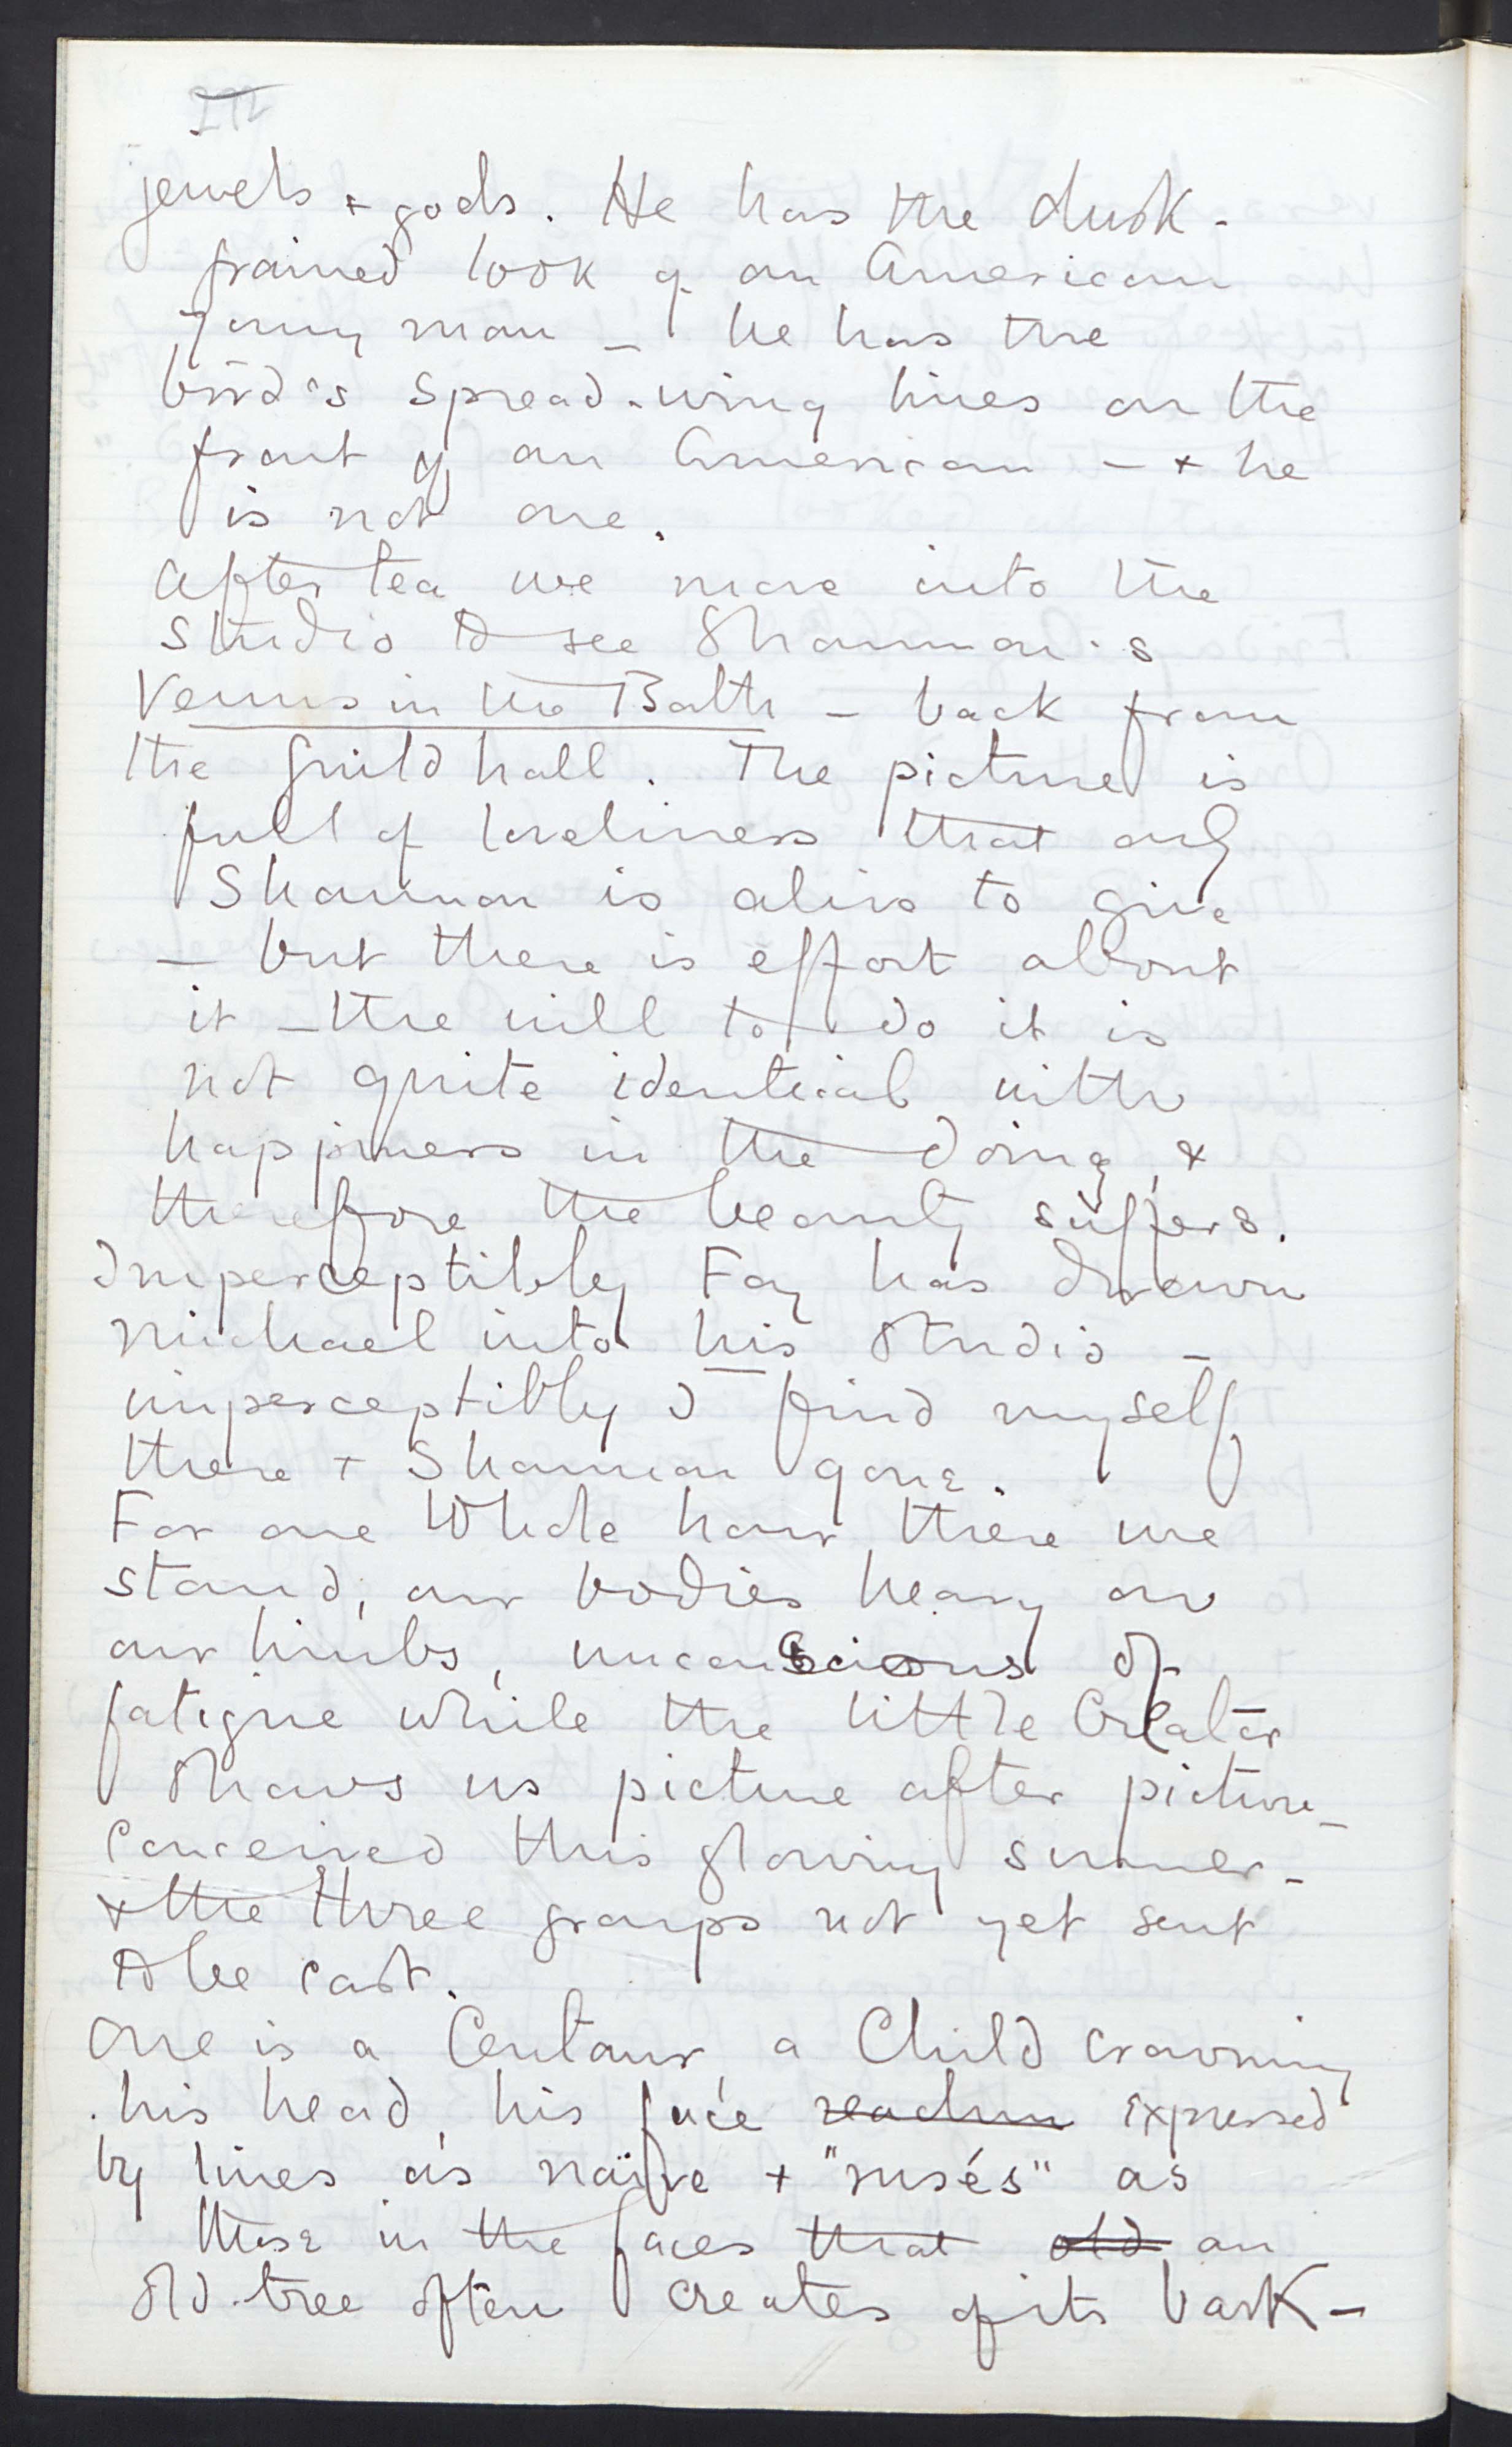 jewels + gods. He has the dusk-
grained look of an American
young man – he has the
bird's spread-wing lines on the
front of an American – + he
is not one.
After tea we move into the
studio to see Shannon's
Venus in the Bath – back from
the Guildhall. The picture is
full of loveliness that only
Shannon is alive to give
– but there is effort about
it – the will to do it is
not quite identical with
happiness in the doing, &
therefore the beauty suffers.
Imperceptibly Fay has drawn
Michael into his studio –
imperceptibly I find myself
there + Shannon gone.
For one whole hour there we
stand, our bodies heavy on
our limbs, unconscious of
fatigue while the little Creator
shows us picture after picture –
conceived this glowing summer –
+ the three groups not yet sent
to be cast.
One is a Centaur, a Child crowning
his head, his face expressed
by lines as naïve + "rusés" as
those in the faces that old an
old tree often creates of its bark –